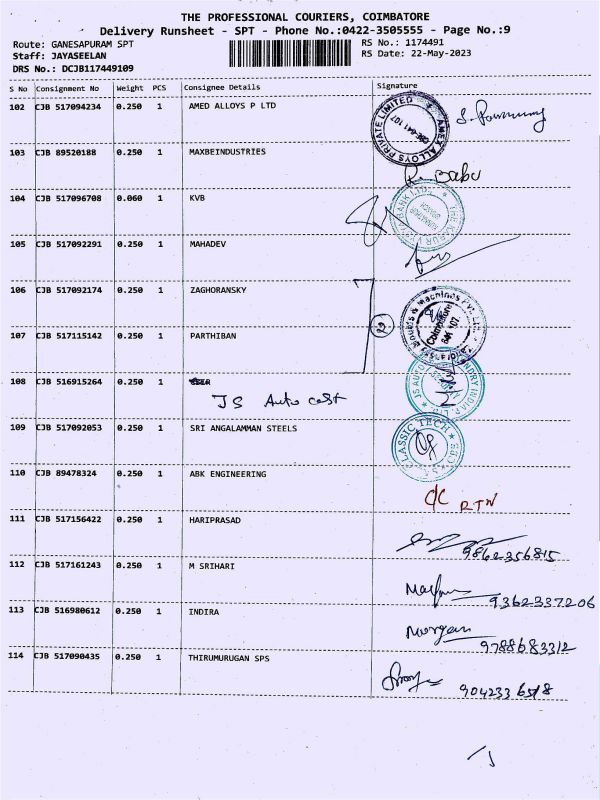 THE PROFESSIONAL COURIERS, COIMBATORE
Delivery Runsheet - SPT - Phone No.:0422-3505555 - Page No.:9
Route: GANESAPURAM SPT RS No.: 1174491
Staff: JAYASEELAN RS Date: 22-May-2023
DRS No.: DCJB117449109
S No Consignment No Weight PCS Consignee Details Signature
102 CJB 517094234 0.250 1 AMED ALLOYS P LTD
AMEX ALLOYS PRIVATE LIMITED CBE-641 107
103 CJB 89520188 0.250 1 MAXBEINDUSTRIES
R. Babu
104 CJB 517096708 0.060 1 KVB
105 CJB 517092291 0.250 1 MAHADEV
106 CJB 517092174 0.250 1 ZAGHORANSKY
Moulds & Machines Pvt. Ltd. Coimbatore 641 107
107 CJB 517115142 0.250 1 PARTHIBAN
108 CJB 516915264 0.250 1
JS Auto cast
109 CJB 517092053 0.250 1 SRI ANGALAMMAN STEELS
CLASSIC TECH
110 CJB 89478324 0.250 1 ABK ENGINEERING
RTN
111 CJB 517156422 0.250 1 HARIPRASAD
9862356815
112 CJB 517161243 0.250 1 M SRIHARI
9362337206
113 CJB 516980612 0.250 1 INDIRA
Morgan
9788683312
114 CJB 517090435 0.250 1 THIRUMURUGAN SPS
9042336518